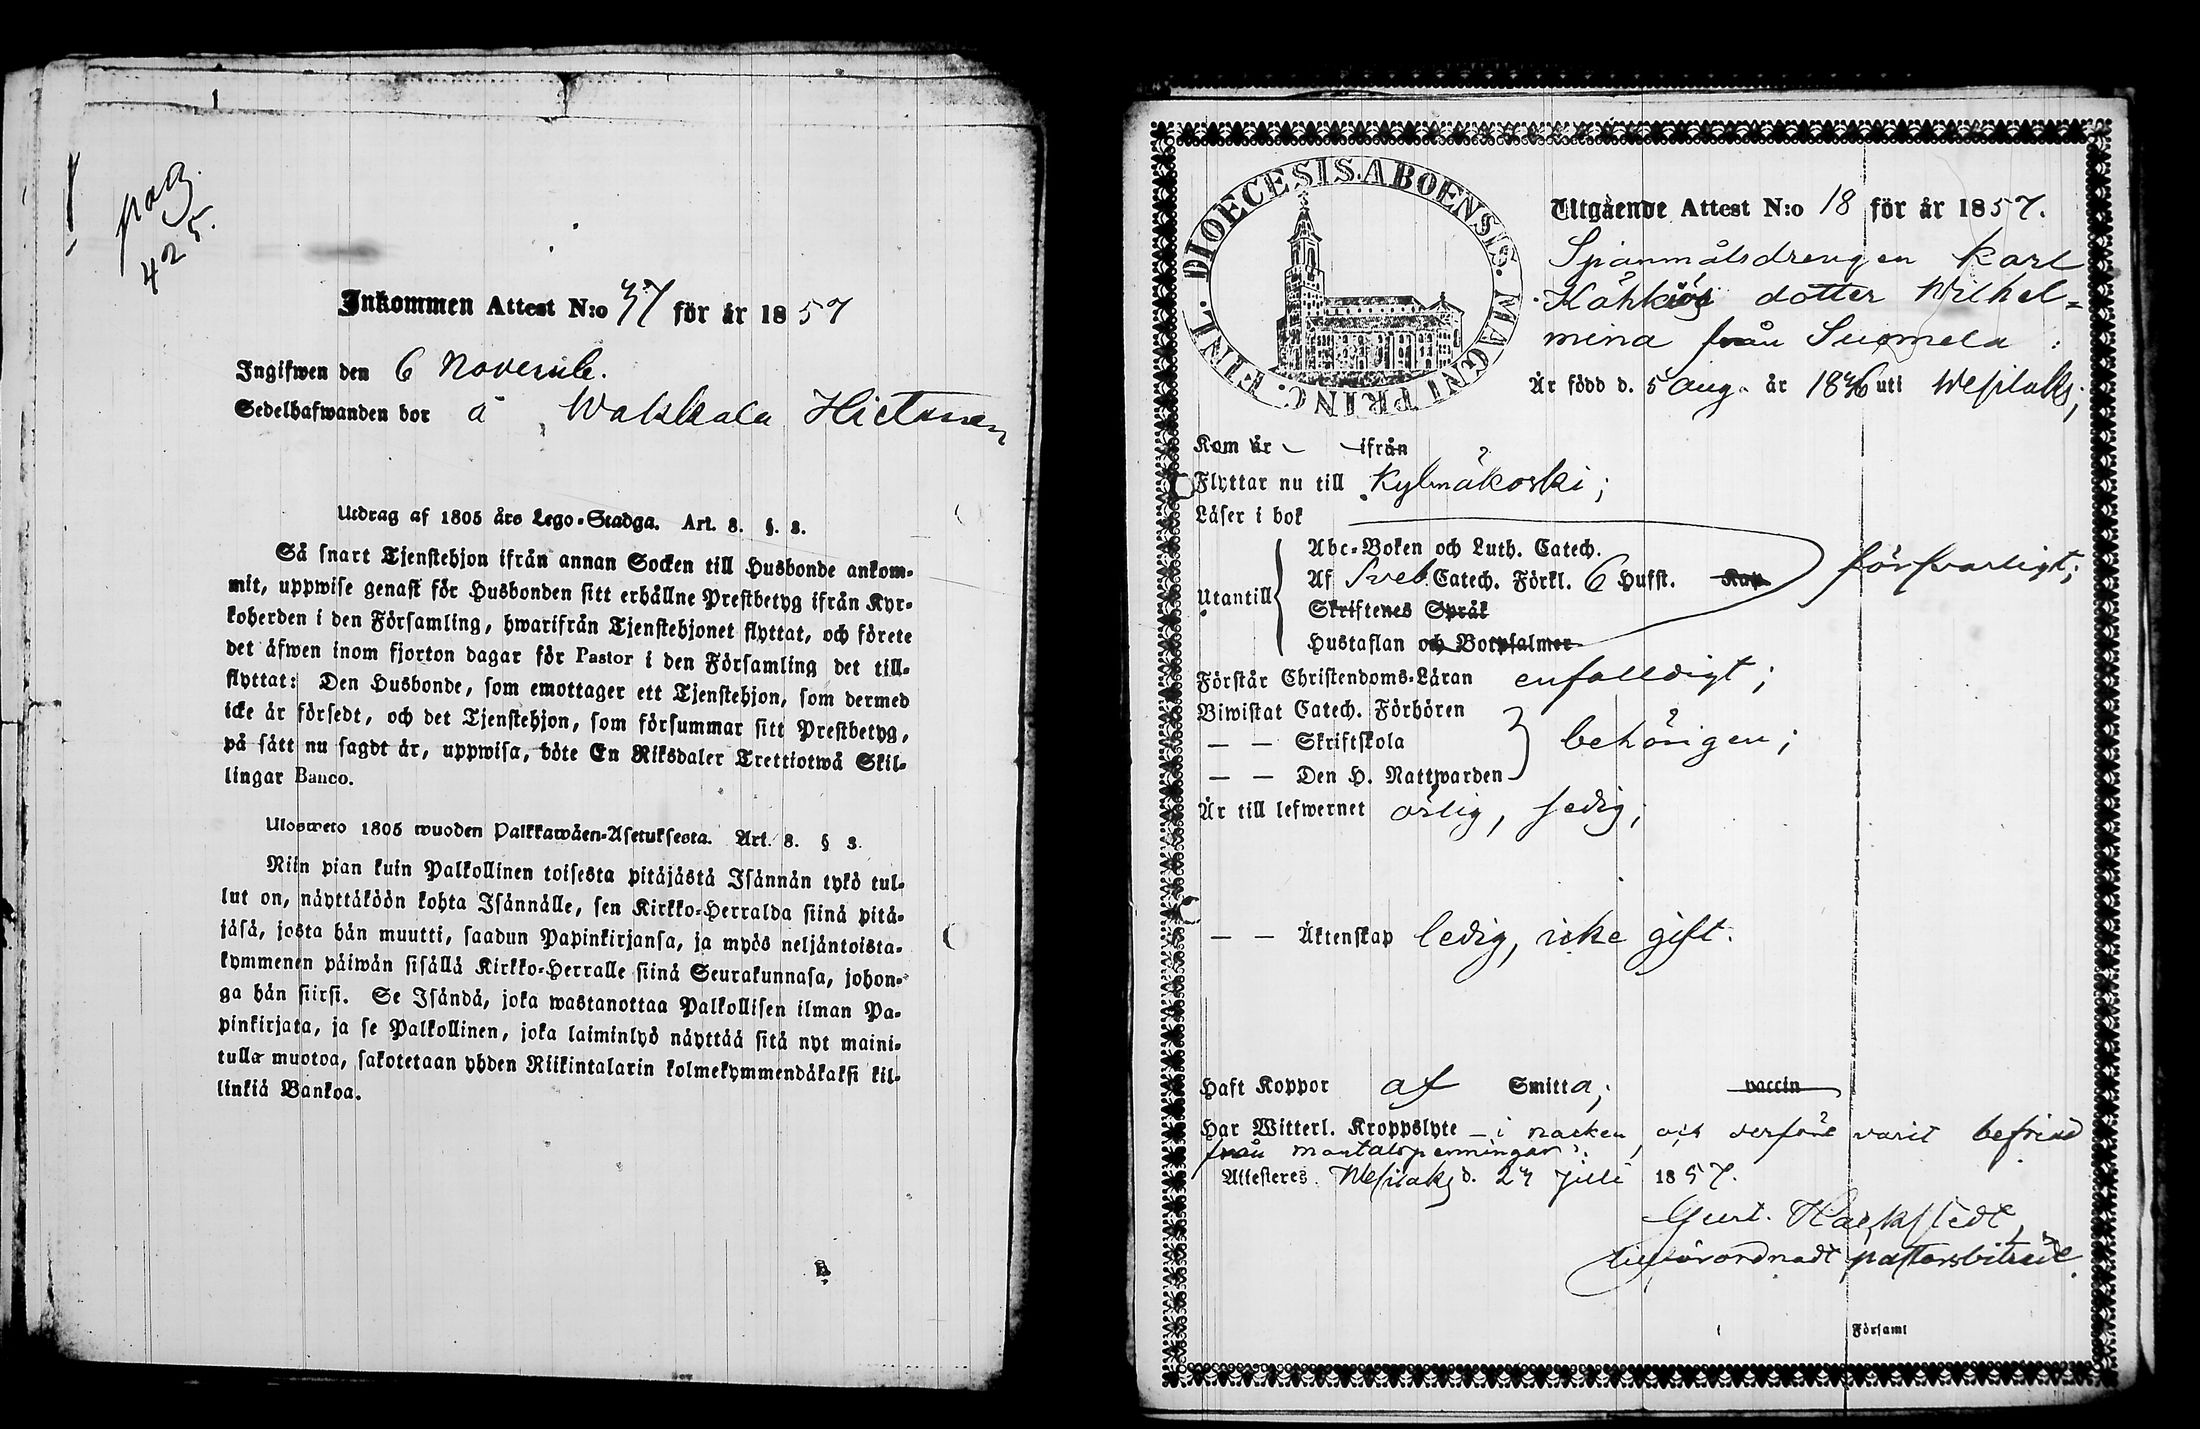 pag.
425.
Inkommen Attest N:o 37 för år 1857
Ingifwen den 6 Novemb.
Sedelhafwanden bor å Wakkala Hietanen
Utdrag af 1805 års Lego-Stadga. Art. 8. §. 3.
Så snart Tjenstehjon ifrån annan Socken till Husbonde ankom-
mit, uppwise genast för Husbonden sitt erhållne Prestbetyg ifrån Kyr-
koherden i den Församling, hwarifrån Tjenstehjonet flyttat, och förete
det äfwen inom fjorton dagar för Pastor i den Församling det till-
flyttat: Den Husbonde, som emottager ett Tjenstehjon, som dermed
icke är försedt, och det Tjenstehjon, som försummar sitt Prestbetyg,
på sätt nu sagdt är, uppwisa, böte En Riksdaler Trettiotwå Skil-
lingar Banco.
Ulosweto 1805 wuoden Palkkawäen-Asetuksesta. Art. 8. § 3.
Niin pian kuin Palkollinen toisesta pitäjästä Isännän tykö tul-
lut on, näyttäköön kohta Isännälle, sen Kirkko-Herralda siinä pitä-
jäsä, josta hän muutti, saadun Papinkirjansa, ja myös neljäntoista-
kymmenen päiwän sisällä Kirkko-Herralle siinä Seurakunnasa, johon-
ga hän siirsi. Se Isändä, joka wastanottaa Palkollisen ilman Pa-
pinkirjata, ja se Palkollinen, joka laiminlyö näyttää sitä nyt maini-
tulla muotoa, sakotetaan yhden Riikintalarin kolmekymmendäkaksi kil-
linkiä Bankoa.
FINL. DIOECESIS. ABOENSIS. MAGNI PRINC.
Utgående Attest N:o 18 för år 1857.
Spånmålsdrengen Karl
Kähkös dotter Wilhel-
mina från Suomela
Är född d. 5 aug. år 1836 uti Wesilaks;
Kom år ifrån
Flyttar nu till Kylmäkoski;
Läser i bok
Utantill
Abc-Boken och Luth. Catech.
Af Sveb. Catech. Förkl. 6 Hufst. Kap
Skriftenes Språk
Hustaflan och Botpsalmer
försvarligt;
Förstår Christendoms-Läran enfalldigt;
Biwistat Catech. Förhören
— — Skriftskola behörigen;
— — Den H. Nattwarden
Är till lefwernet ärlig, sedig;
— — Äktenskap ledig, icke gift.
Haft Koppor af Smitta; vaccin
Har Witterl. Kroppslyte — i nacken, och derföre varit befriad
från mantalspenningar;
Attesteres Wesilaks d. 27 Julii 1857.
Gust. Hackstedt,
tillförordnadt pastorsbiträde.
Församl